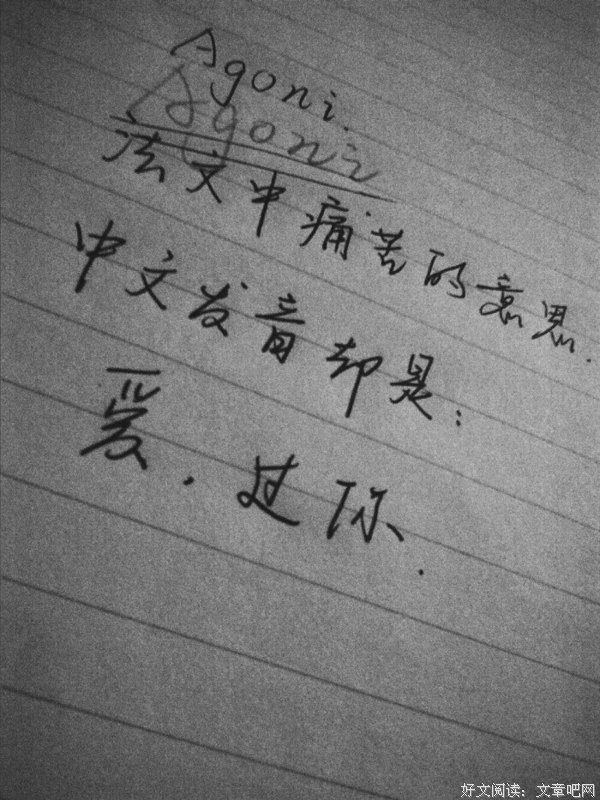 Agoni.
Agoni
法文中痛苦的意思.
中文发音却是:
爱.过你.
好文阅读：文章吧网